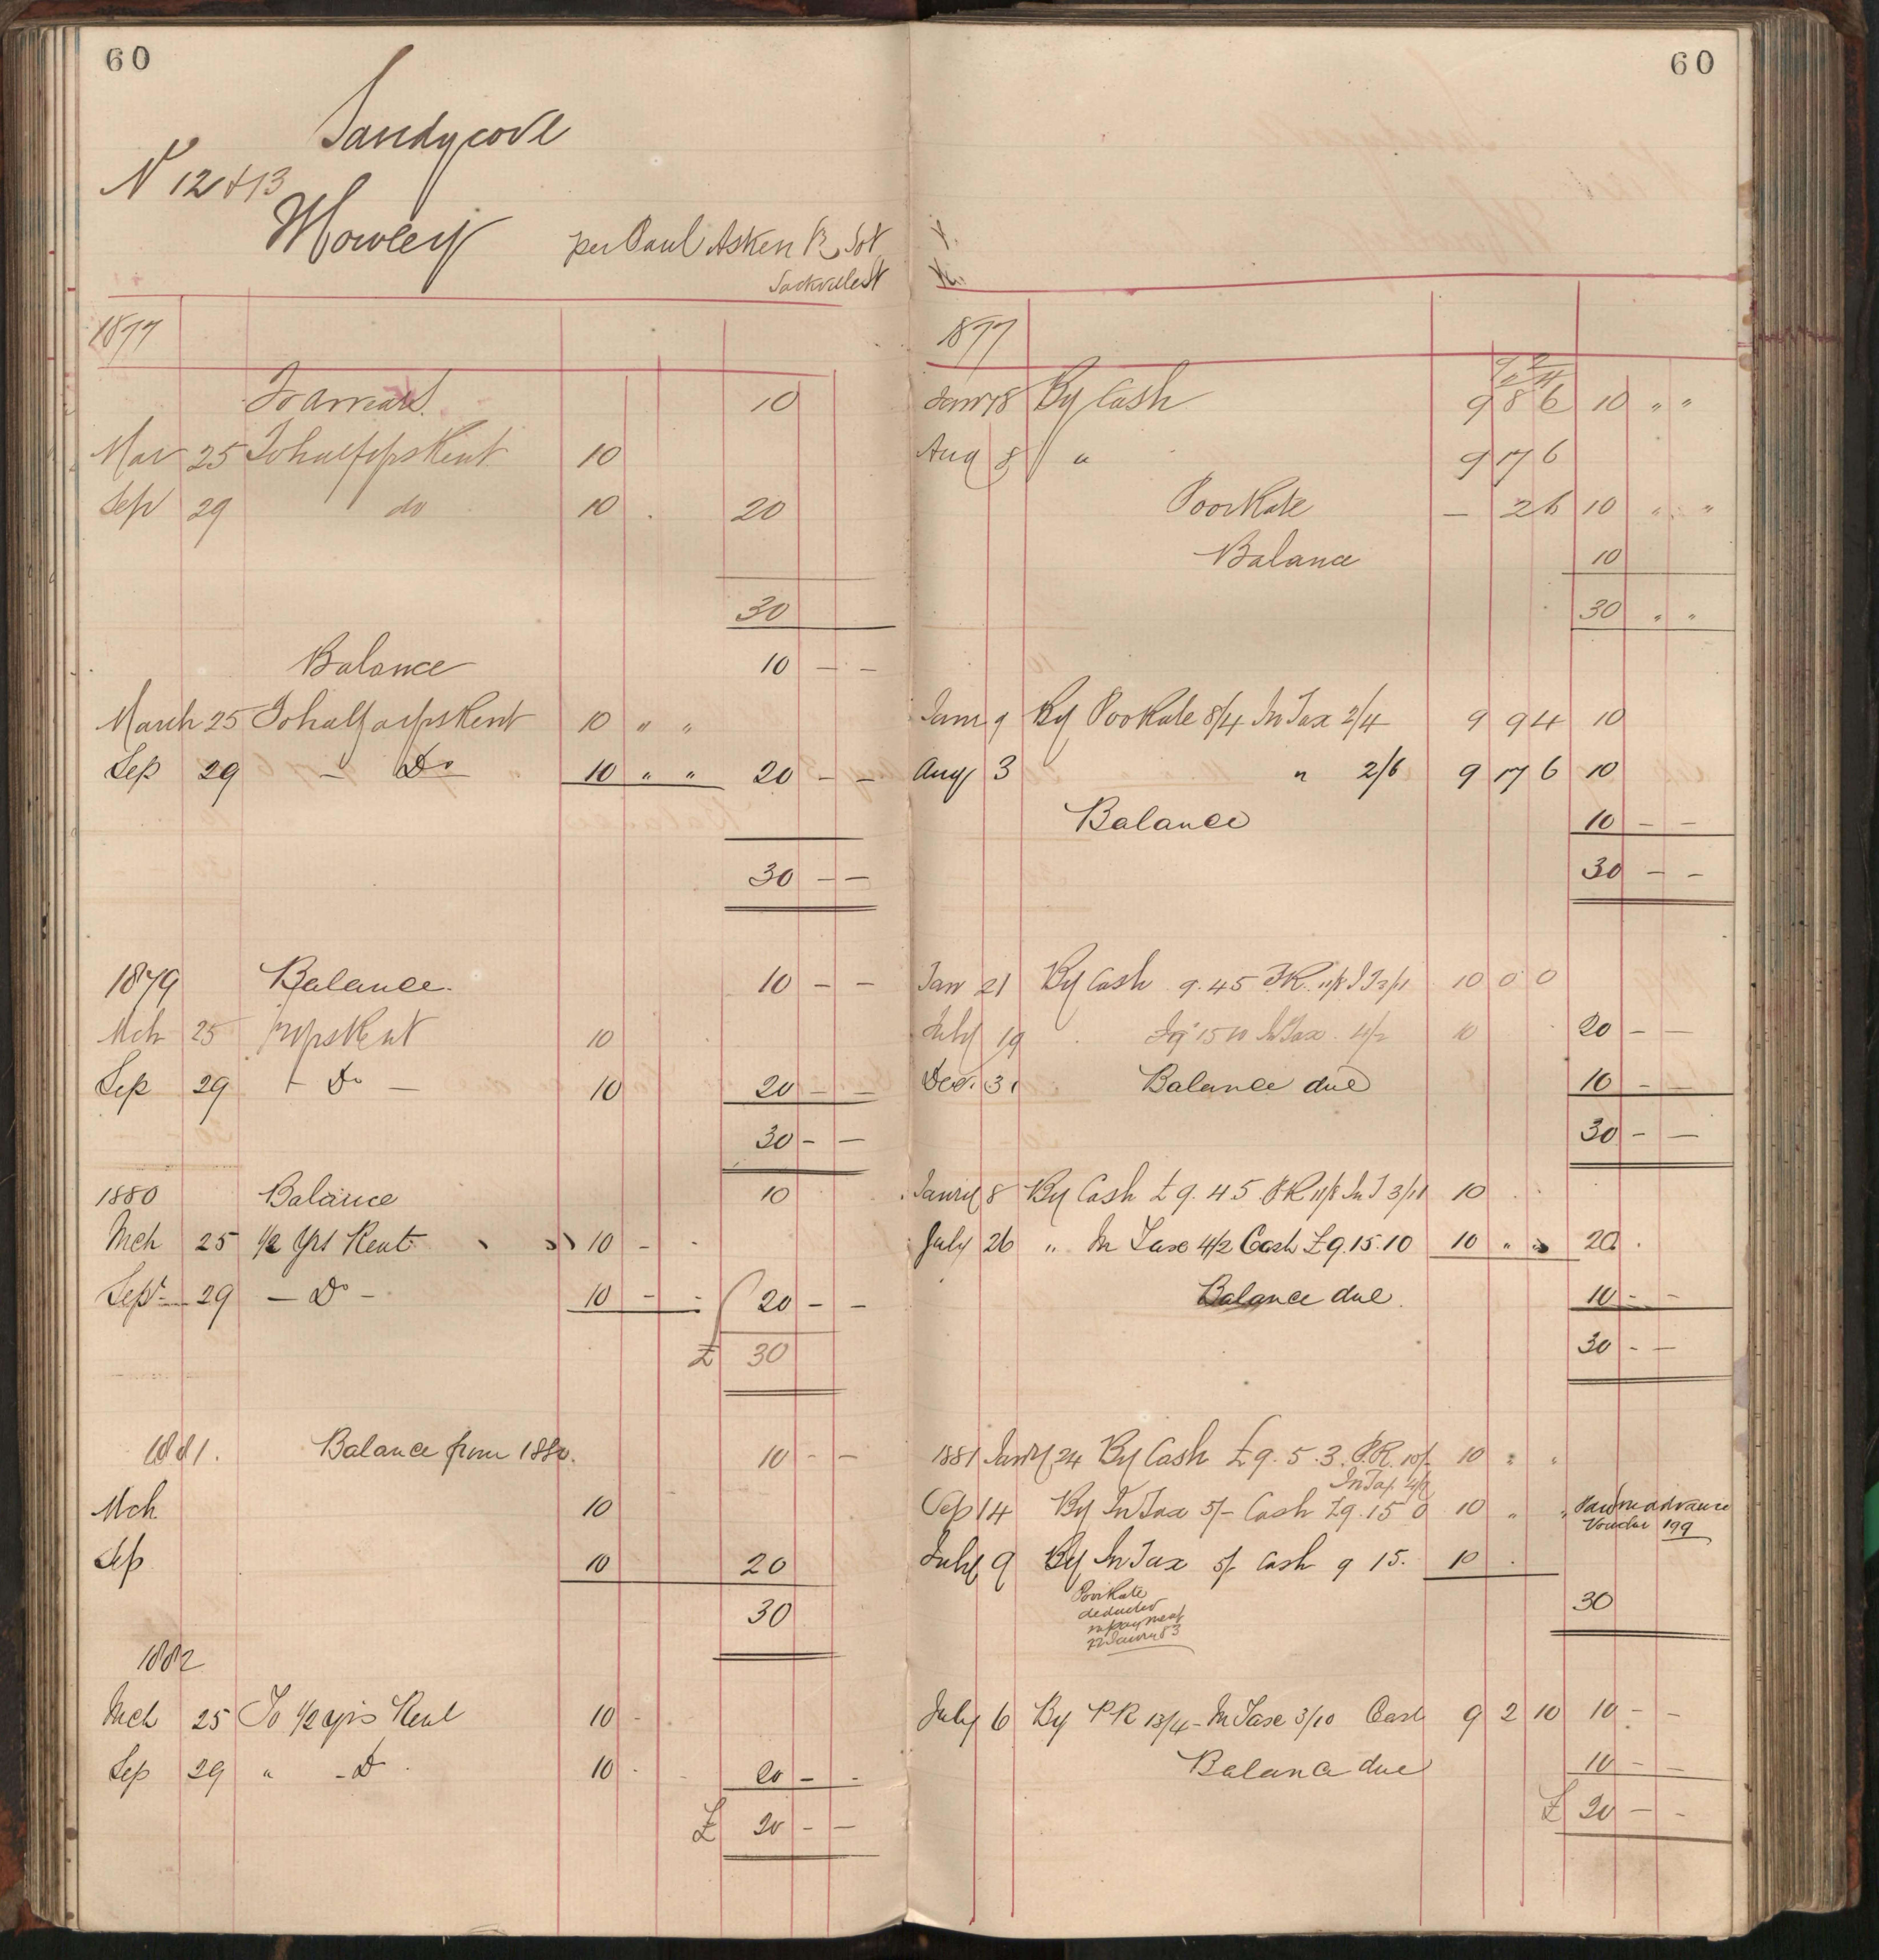 60
Sandycove
No 12 & 13
Mowley per Paul Asken
Sackville St
1877
To arrears 10
Mar 25 To half yrs Rent 10
Sep 29 do 10 20
30
Balance 10 — —
March 25 To half a yrs Rent 10 " "
Sep 29 — Do 10 " " 20 — —
30 — —
1879 Balance 10 — —
Mch 25 ½ yrs Rent 10
Sep 29 — Do — 10 20 — —
30 — —
1880 Balance 10
Mch 25 ½ Yrs Rent 10 — -
Sept 29 — Do — 10 — - 20 — —
£ 30
1881. Balance from 1880. 10 — —
Mch 10
Sep 10 20
30
1882
Mch 25 To ½ yrs Rent 10 -
Sep 29 " - Do 10 - 20 — -
£ 20 — —
60
1877
Jany 8 By Cash 9 8 6 10 " "
Aug 8 " 9 17 6
Poor Rate — 2 6 10 " "
Balance 10
30 " "
Jany 9 By Poor Rate 8/4 In Tax 2/4 9 9 4 10
Aug 3 " 2/6 9 17 6 10
Balance 10 — —
30 — —
Jan 21 By Cash 9.4.5 P.R. 11/8 I T 3/11 10 0 0
July 19 £9 15 10 In Tax 4/2 10 20 — —
Dec. 31 Balance due 10 — —
30 — —
Janry 8 By Cash £9.4 5 P R 11/8 In T 3/11 10
July 26 " In Tax 4/2 Cash £9.15.10 10 " " 20
Balance due 10 — —
30 — —
1881 Janry 24 By Cash £9.5.3. P.R. 10/- 10 " "
In Tax 4/9
Sep 14 By In Tax 5/- Cash £9.15 0 10 " " Paid in advance
Voucher 199
July 9 By In Tax 5/- Cash 9 15. 10
Poor Rate
deducted
in payment
22 Janry 83
30
July 6 By P R 13/4 - In Tax 3/10 Cash 9 2 10 10 — —
Balance due 10 — —
£ 20 — -